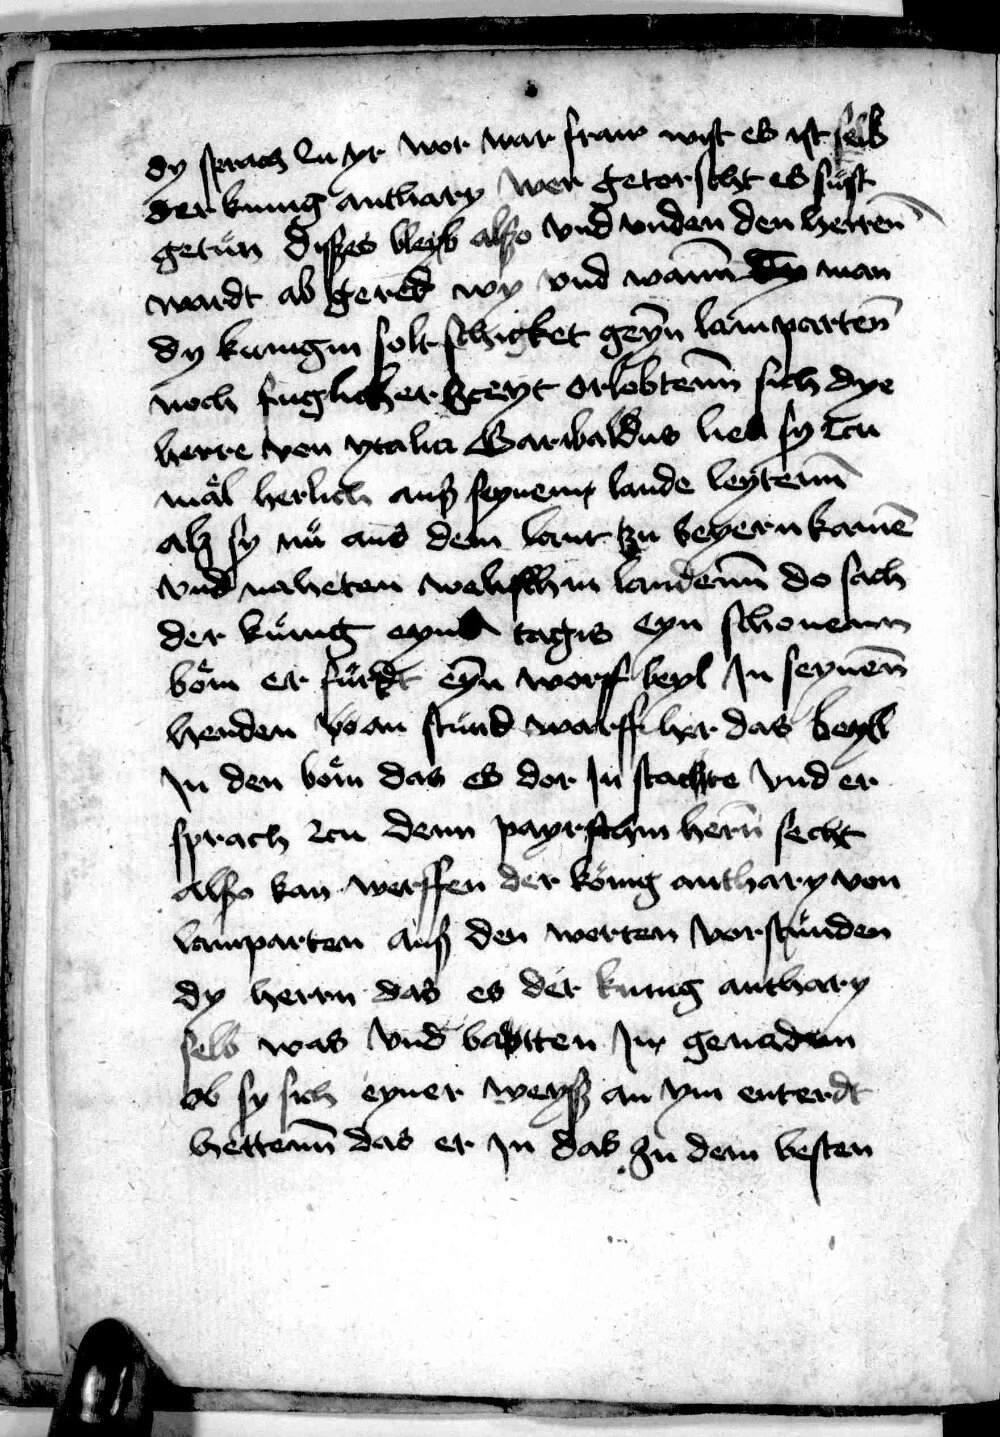 dy sprach zu yr wor war fraw wist es ist selb
der kunig anthary wer getorscht es sust
getůn dißes bleyb alßo vnd vnden den herren
wardt ab gered wy vnd wann man
dy kunigin solt schigket geyn lamparten
noch fuglicher zceyt orlobtenn sich dye
herre von ytalia Garibaldus lies sy zcu
mål herlich auß seynem lande leytenn
alß sy nů aus dem lant zu beyern kamē
vnd naheten welischin landenn do sach
der kůnig eyns tagis eyn schonenn
bőm er fůrdt eyn worff beyl In seynen
henden von stund warff her das beyl
In den bőm das es dor In stackte vnd er
sprach zcu denn payrschin hern secht
alßo kan werffen der kőnig anthary von
lamparten auß den worten vorstůnden
dy herrn das es der kunig anthary
selb was vnd batten In genaden
ob sy sich eyner weyß an ym enterdt
hettenn das er In das zu dem besten